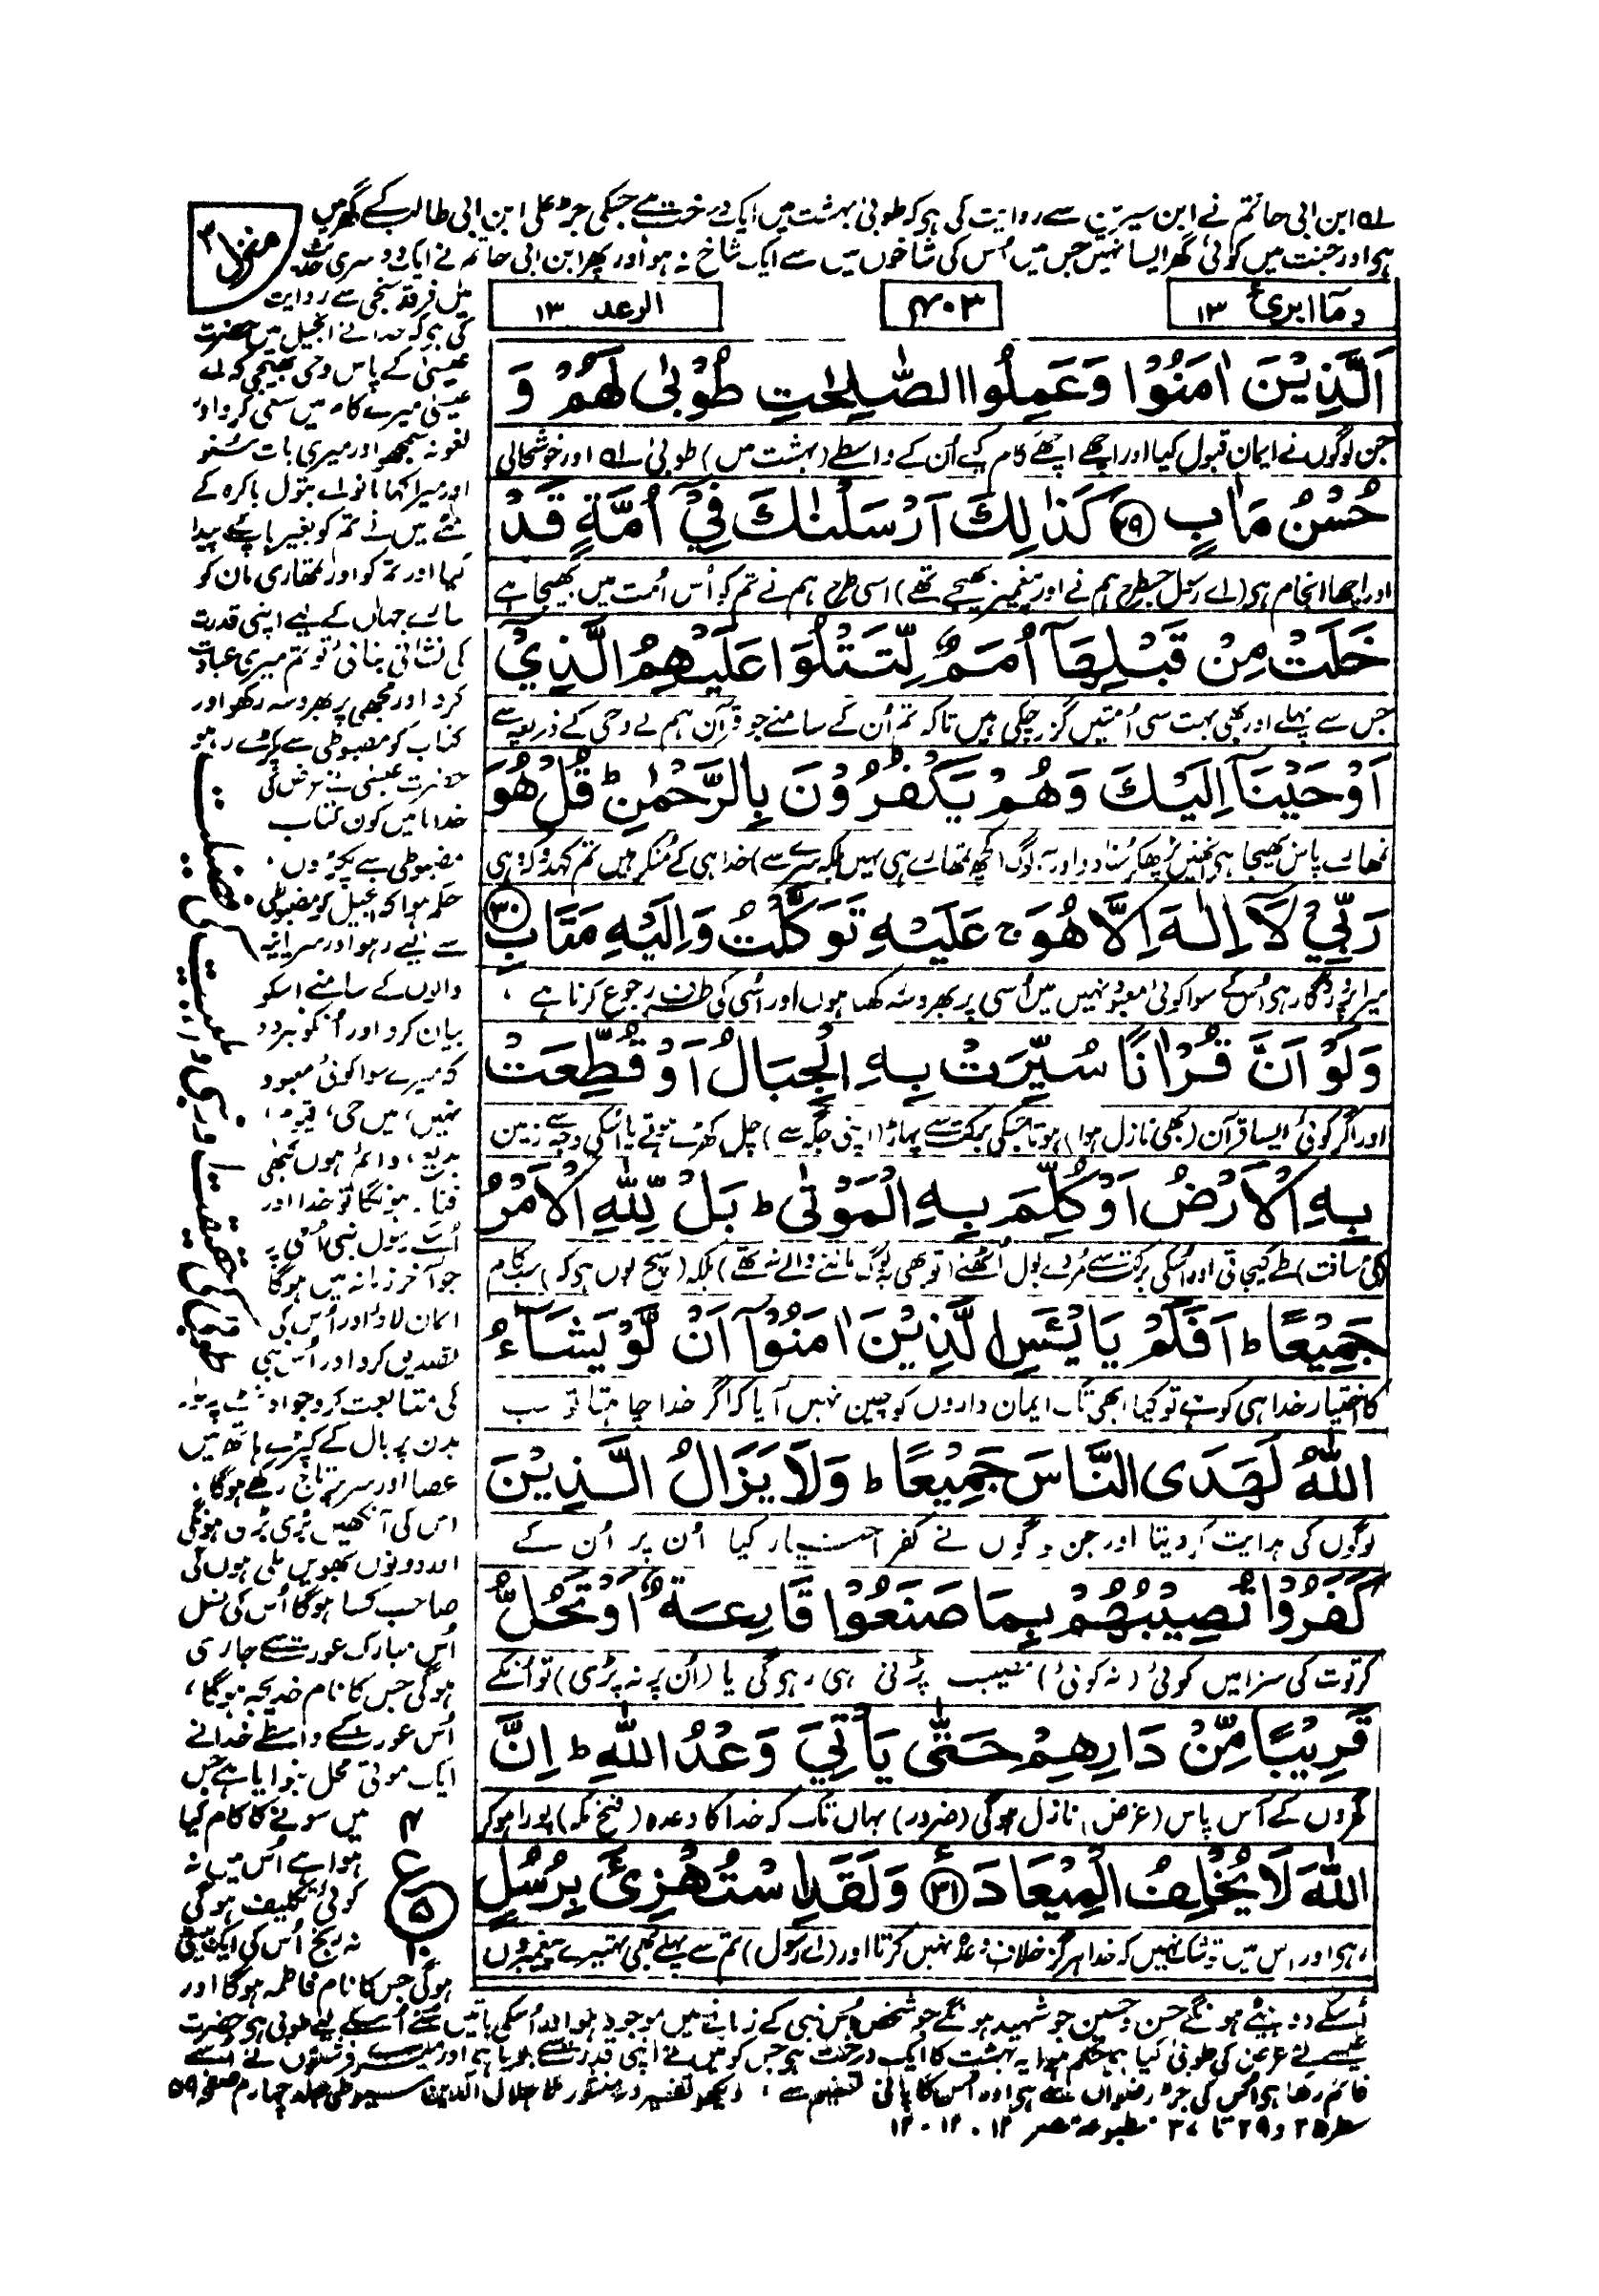 لہ ابن ابی حاتم نے ابن سیرین سے روایت کی ہی کہ طوبیٰ بہشت میں ایک درخت ہے جسکی جڑ علی ابن ابی طالب کے گھر میں
ہی اور جنت میں کوئی گھر ایسا نہیں جس میں اُس کی شاخوں میں سے ایک شاخ نہ ہو اور پھر ابن ابی حاتم نے ایک دوسری حدیث
منزل ۳
وما ابرئ ۱۳
۴۰۳
الرعد ۱۳
اَلَّذِیْنَ اٰمَنُوْا وَعَمِلُوا الصّٰلِحٰتِ طُوْبٰی لَهُمْ وَ
جن لوگوں نے ایمان قبول کیا اور اچھے اچھے کام کیے اُن کے واسطے (بہشت میں) طوبیٰ لہ اور خوشحالی
حُسْنُ مَاٰبٍ ۲۹ كَذٰلِكَ اَرْسَلْنٰكَ فِیْۤ اُمَّةٍ قَدْ
اور اچھا انجام ہی (اے رسول جسطرح ہم نے اور پیغمبر بھیجے تھے) اسی طرح ہم نے تم کو اُس اُمت میں بھیجا ہے
خَلَتْ مِنْ قَبْلِهَاۤ اُمَمٌ لِّتَتْلُوَا عَلَیْهِمُ الَّذِیْۤ
جس سے پہلے اور بھی بہت سی اُمتیں گزر چکی ہیں تاکہ تم اُن کے سامنے جو قرآن ہم نے وحی کے ذریعہ سے
اَوْحَیْنَاۤ اِلَیْكَ وَهُمْ یَكْفُرُوْنَ بِالرَّحْمٰنِ ؕ قُلْ هُوَ
تمھارے پاس بھیجا ہی انھیں پڑھکر سُنا دو اور یہ لوگ (کچھ تمھارے ہی نہیں بلکہ سرے سے) خدا ہی کے مُنکر ہیں تم کہدو کہ وہی
رَبِّیْ لَاۤ اِلٰهَ اِلَّا هُوَ ۚ عَلَیْهِ تَوَكَّلْتُ وَاِلَیْهِ مَتَابِ ۳۰
میرا پروردگار ہی اُسکے سوا کوئی معبود نہیں میں اُسی پر بھروسہ رکھتا ہوں اور اُسی کی طرف رجوع کرنا ہے ،
وَلَوْ اَنَّ قُرْاٰنًا سُیِّرَتْ بِهِ الْجِبَالُ اَوْ قُطِّعَتْ
اور اگر کوئی ایسا قرآن (بھی نازل ہوا) ہوتا جسکی برکت سے پہاڑ (اپنی جگہ سے) چل کھڑے ہوتے یا اُسکی وجہ سے زمین
بِهِ الْاَرْضُ اَوْ كُلِّمَ بِهِ الْمَوْتٰی ؕ بَلْ لِّلّٰهِ الْاَمْرُ
(کی مسافت) طے کیجاتی اور اُسکی برکت سے مُردے بول اُٹھتے (تو بھی یہ لوگ ماننے والے نہ تھے) بلکہ (سچ یوں ہی کہ) سب کام
جَمِیْعًا ؕ اَفَلَمْ یَایْـَٔسِ الَّذِیْنَ اٰمَنُوْۤا اَنْ لَّوْ یَشَآءُ
کا اختیار خدا ہی کو ہے تو کیا ابھی تک ایمان داروں کو چین نہیں آیا کہ اگر خدا چاہتا تو سب
اللّٰهُ لَهَدَی النَّاسَ جَمِیْعًا ؕ وَلَا یَزَالُ الَّذِیْنَ
لوگوں کی ہدایت کر دیتا اور جن لوگوں نے کفر اختیار کیا اُن پر اُن کے
كَفَرُوْا تُصِیْبُهُمْ بِمَا صَنَعُوْا قَارِعَةٌ اَوْ تَحُلُّ
کرتوت کی سزا میں کوئی (نہ کوئی) مصیبت پڑتی ہی رہیگی یا (اُن پر نہ پڑی) تو اُنکے
قَرِیْبًا مِّنْ دَارِهِمْ حَتّٰی یَاْتِیَ وَعْدُ اللّٰهِ ؕ اِنَّ
گھروں کے آس پاس (غرض) نازل ہوگی (ضرور) یہاں تک کہ خدا کا وعدہ (فتح مکہ) پورا ہو کر
اللّٰهَ لَا یُخْلِفُ الْمِیْعَادَ ۳۱ وَلَقَدِ اسْتُهْزِئَ بِرُسُلٍ
رہی اور اس میں تو شک نہیں کہ خدا ہرگز خلاف وعدہ نہیں کرتا اور (اے رسول) تم سے پہلے بھی بہتیرے پیغمبروں
میں فرقد سنجی سے روایت
کی ہو کہ خدا نے انجیل میں حضرت
عیسیٰ کے پاس وحی بھیجی کہ اے
عیسیٰ میرے کام میں سعی کرو اور
لغو نہ سمجھو اور میری بات سُنو
اور میرا کہا مانو اے بتول باکرہ کے
بیٹے میں نے تم کو بغیر باپ کے پیدا
کیا اور تم کو اور تمھاری ماں کو
سارے جہاں کے لیے اپنی قدرت
کی نشانی بنائی تو تم میری عبادت
کرو اور مجھی پر بھروسہ رکھو اور
کتاب کو مضبوطی سے پکڑے رہو
حضرت عیسیٰ نے عرض کی
خدایا میں کون کتاب
مضبوطی سے پکڑوں،
حکم ہوا کہ انجیل کو مضبوطی
سے لیے رہو اور سریانیہ
والوں کے سامنے اسکو
بیان کرو اور اُنکو خبر دو
کہ میرے سوا کوئی معبود
نہیں، میں حی، قیوم،
بدیع، دائم ہوں کبھی
فنا نہ ہونگا تو خدا اور
اُسکے رسول نبی اُمی پر
جو آخر زمانہ میں ہوگا
ایمان لاؤ اور اُس کی
تصدیق کرو اور اُس نبی
کی متابعت کرو جو اونٹ پر سوار
بدن پر بال کے کپڑے ہاتھ میں
عصا اور سر پر تاج رکھے ہوگا،
اس کی آنکھیں بڑی بڑی ہونگی
اور دونوں بھویں ملی ہوں گی
صاحب کسا ہوگا اُس کی نسل
اُس مبارک عورت سے جاری
ہوگی جس کا نام خدیجہ ہوگا،
اُس عورت کے واسطے خدا نے
ایک موتی محل بنوایا ہے جس
میں سونے کا کام کیا
ہوا ہے اُس میں نہ
کوئی تکلیف ہوگی
نہ رنج اُس کی ایک بیٹی
ہوگی جس کا نام فاطمہ ہوگا اور
طوبیٰ کی حقیقت اور نبی و اہلبیت کی فضیلت
۴
ع
۵
۱۰
اُسکے دو بیٹے ہونگے حسن و حسین جو شہید ہونگے جو شخص اُس نبی کے زمانے میں موجود ہو اور اُسکی باتیں سُنے اُسکے لیے طوبیٰ ہی حضرت
عیسیٰ نے عرض کی طوبیٰ کیا ہی حکم ہوا یہ بہشت کا ایک درخت ہی جس کو میں نے اپنی قدرت سے بویا ہی اور میرے فرشتوں نے اسے
قائم رکھا ہی اُس کی جڑ رضواں سے ہی اور اُس کا پانی تسنیم سے ، دیکھو تفسیر در منثور ملا جلال الدین سیوطی جلد چہارم صفحہ ۵۹
سطر ۲۵ و ۲۹ تا ۳۷ مطبوعہ مصر ۱۲ . ۱۲ . ۱۲